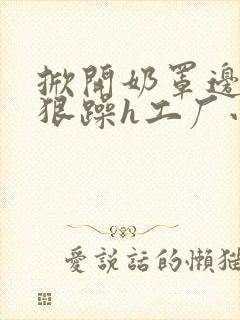 掀開奶罩邊
狠躁h工厂
愛說話的懶猫